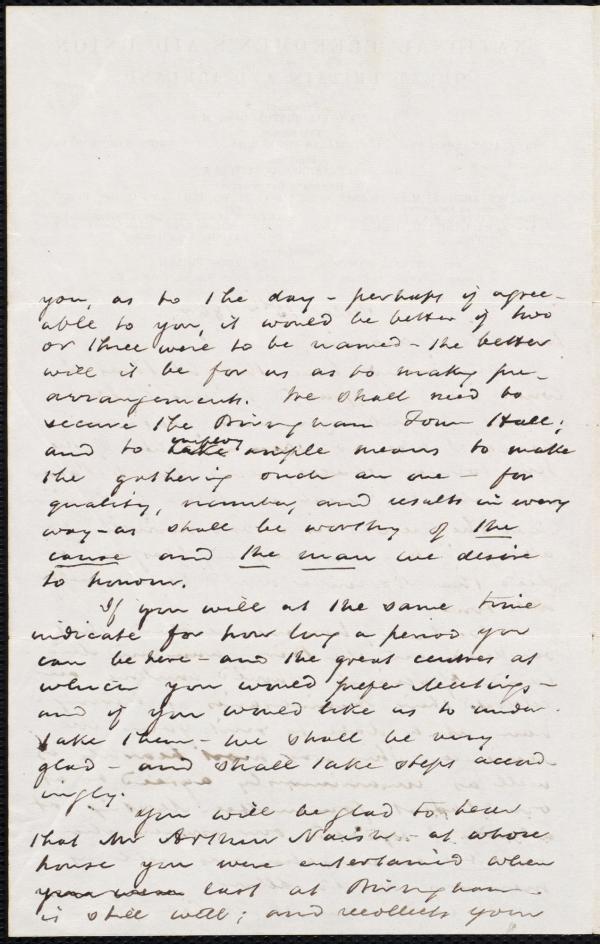 you, as to the day - perhaps if agree-
able to you, it would be better if two
or three were to be named - the better
will it be for us as to making pre-
arrangements. We shall need to
secure the Birmingham Town Hall;
and to take employ ample means to make
the gathering such an one - for
quality, number, and results in every
way - as shall be worthy of the
cause and the man we desire
to honour.
If you will at the same time
indicate for how long a period you
can be here - and the great centres at
which you would prefer Meetings -
and if you would like us to under-
take them - we shall be very
glad - and shall take steps accord-
ingly.
You will be glad to hear
that Mr Arthur Naish - at whose
house you were entertained when
you were last at Birmingham -
is still well; and recollects your